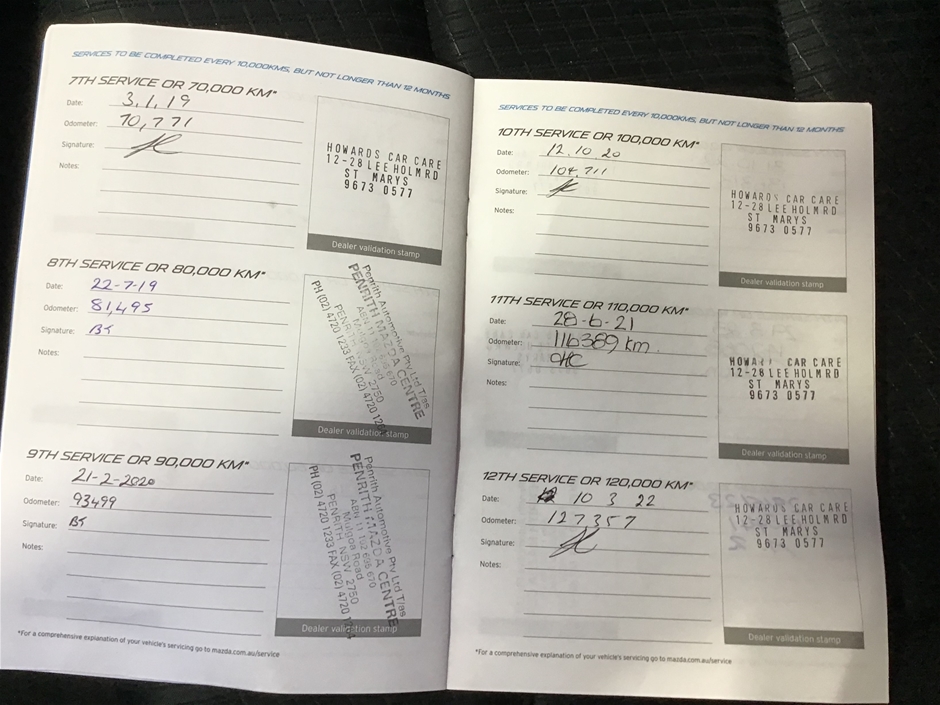 SERVICES TO BE COMPLETED EVERY 10,000KMS, BUT NOT LONGER THAN 12 MONTHS
7TH SERVICE OR 70,000 KM*
Date: 3.1.19
Odometer: 70,771
Signature:
Notes:
HOWARDS CAR CARE
12-28 LEE HOLM RD
ST MARYS
9673 0577
Dealer validation stamp
8TH SERVICE OR 80,000 KM*
Date: 22-7-19
Odometer: 81,495
Signature: BT
Notes:
Penrith Automotive Pty Ltd T/as
PENRITH MAZDA CENTRE
ABN 11 102 696 670
Mulgoa Road
PENRITH NSW 2750
PH (02) 4720 1233 FAX (02) 4720
Dealer validation stamp
9TH SERVICE OR 90,000 KM*
Date: 21-2-2020
Odometer: 93499
Signature: BT
Notes:
Penrith Automotive Pty Ltd T/as
PENRITH MAZDA CENTRE
ABN 11 102 696 670
Mulgoa Road
PENRITH NSW 2750
PH (02) 4720 1233 FAX (02) 4720
Dealer validation stamp
*For a comprehensive explanation of your vehicle's servicing go to mazda.com.au/service
SERVICES TO BE COMPLETED EVERY 10,000KMS, BUT NOT LONGER THAN 12 MONTHS
10TH SERVICE OR 100,000 KM*
Date: 12.10.20
Odometer: 104,711
Signature:
Notes:
HOWARDS CAR CARE
12-28 LEE HOLM RD
ST MARYS
9673 0577
Dealer validation stamp
11TH SERVICE OR 110,000 KM*
Date: 28-6-21
Odometer: 116389 km
Signature:
Notes:
HOWARDS CAR CARE
12-28 LEE HOLM RD
ST MARYS
9673 0577
Dealer validation stamp
12TH SERVICE OR 120,000 KM*
Date: 10 3 22
Odometer: 127357
Signature:
Notes:
HOWARDS CAR CARE
12-28 LEE HOLM RD
ST MARYS
9673 0577
Dealer validation stamp
*For a comprehensive explanation of your vehicle's servicing go to mazda.com.au/service